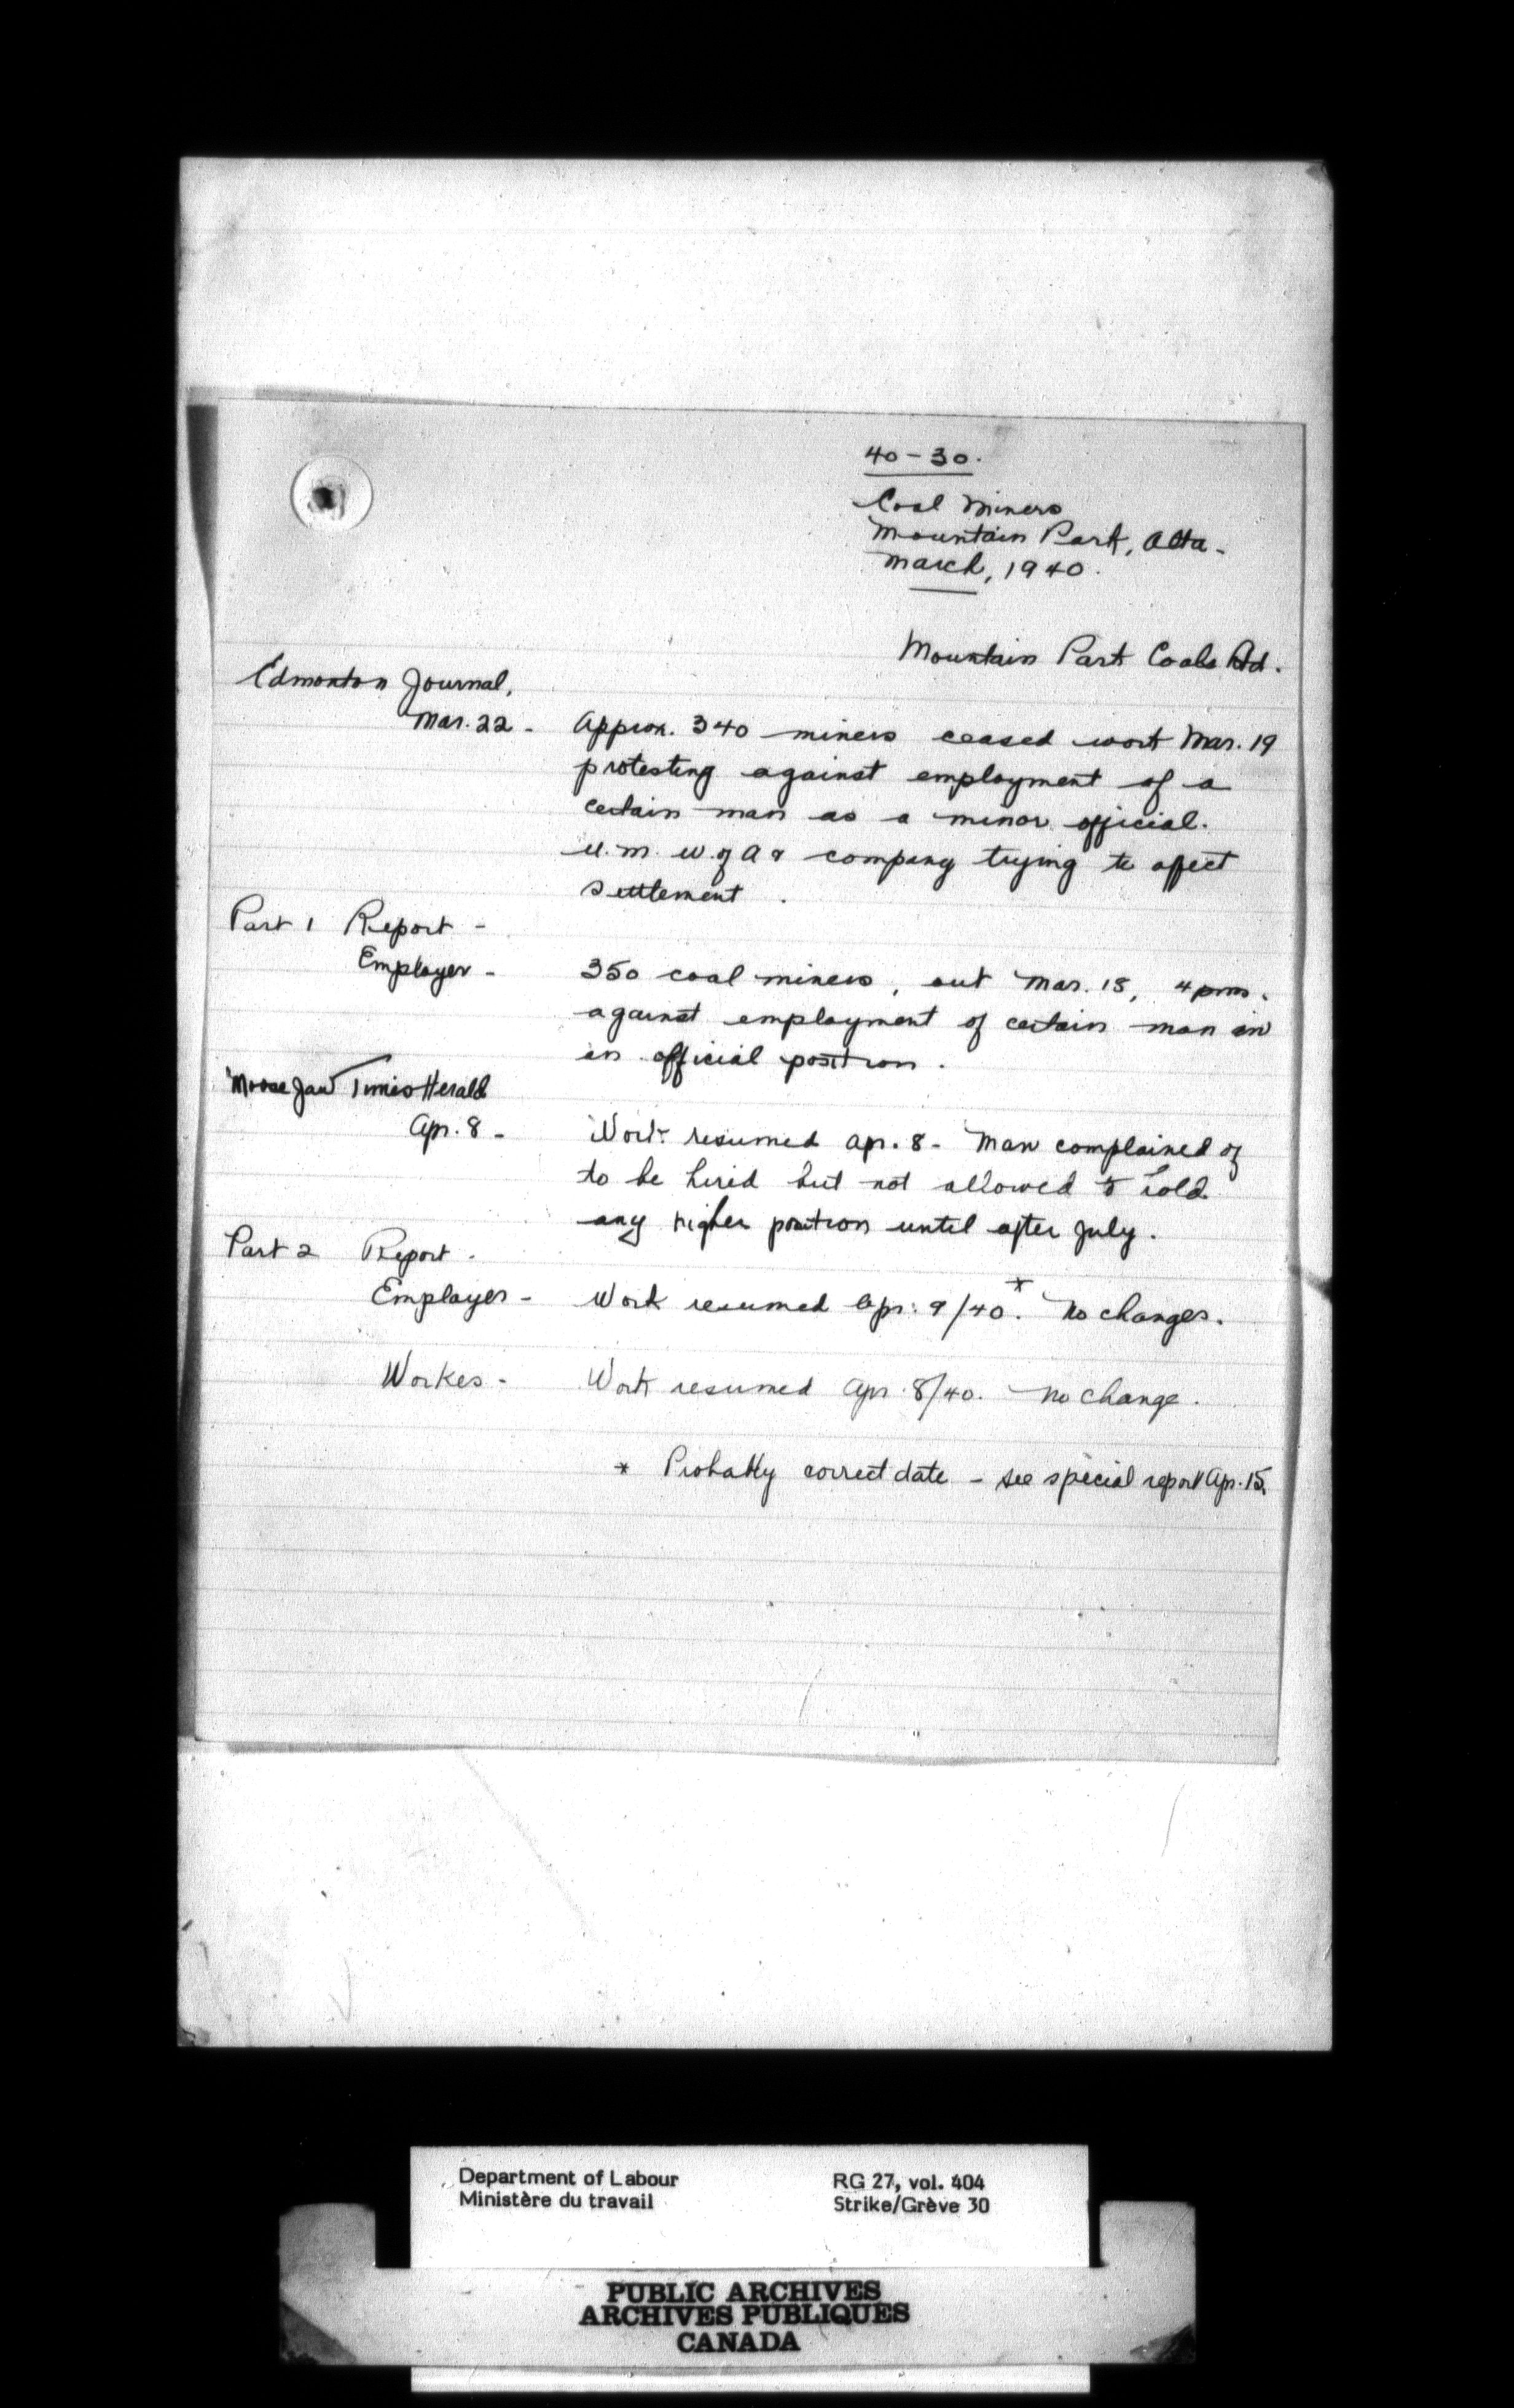 40-30.
Coal Miners
Mountain Park, Alta.
March, 1940.
Mountain Park Coals Ltd.
Edmonton Journal,
Mar. 22 - Approx. 340 miners ceased work Mar. 19
protesting against employment of a
certain man as a minor official.
U.M.W. of A & company trying to affect
settlement.
Part 1 Report -
Employer - 350 coal miners, out Mar. 18, 4 p.m.
against employment of certain man in
in official position.
Moose Jaw Times Herald
Apr. 8 - Work resumed Apr. 8 - Man complained of
to be hired but not allowed to hold
any higher position until after July.
Part 2 Report.
Employer - Work resumed Apr. 9/40.* No changes.
Workes - Work resumed Apr. 8/40. No change.
* Probably correct date - see special report Apr. 15.
Department of Labour
Ministère du travail
RG 27, vol. 404
Strike/Grève 30
PUBLIC ARCHIVES
ARCHIVES PUBLIQUES
CANADA